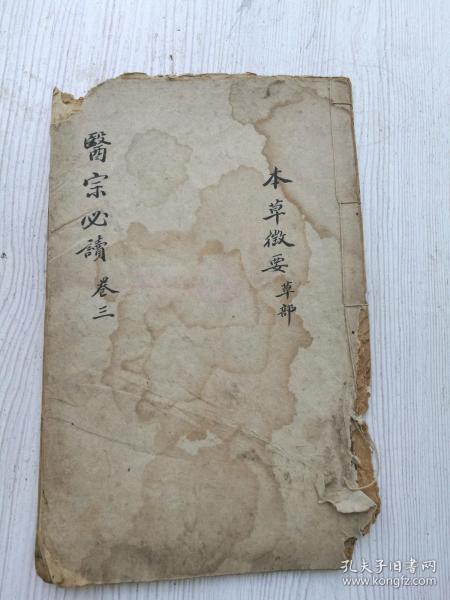 醫宗必讀 卷三
本草徵要 草部
孔夫子旧书网
www.kongfz.com